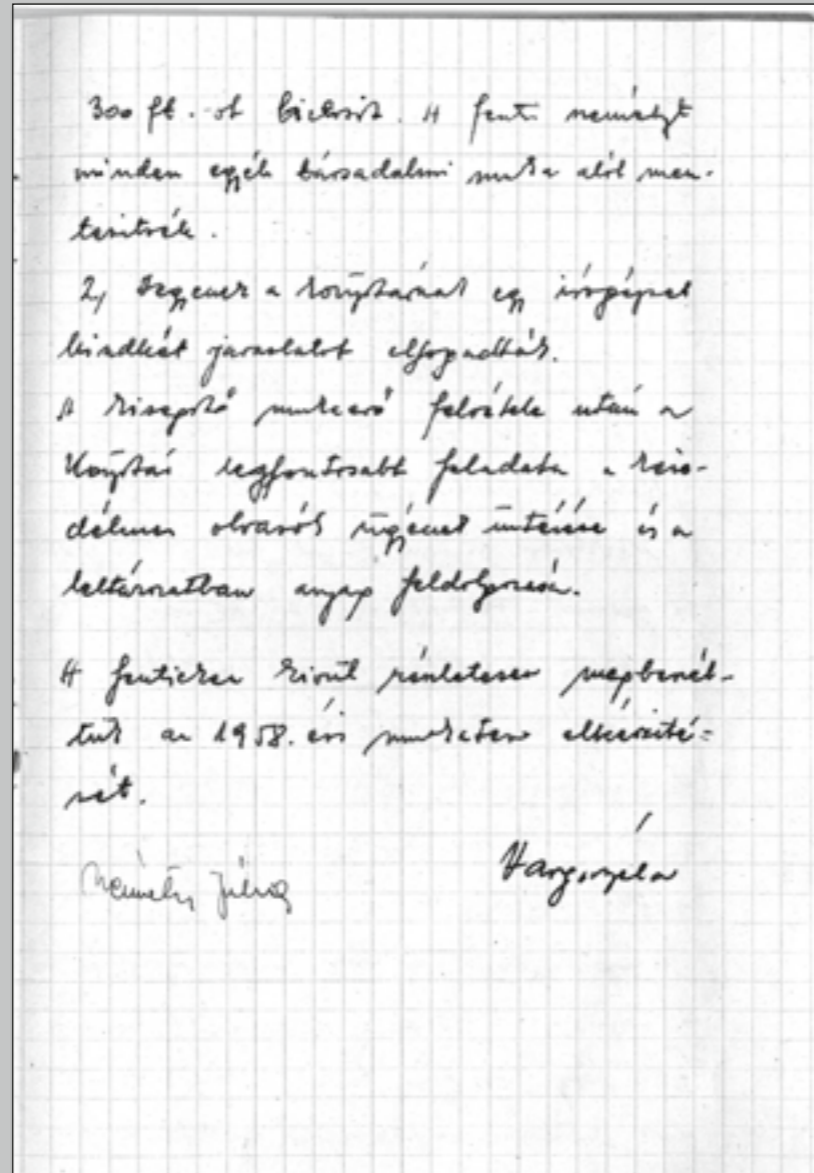 300 ft.-ot biztosít. A fenti személyt
minden egyéb társadalmi munka alól men-
tesítsék.
2, Vegyenek a könyvtárnak egy írógépet
Mindkét javaslatot elfogadták.
A kisegítő munkaerő felvétele után a
Könyvtár legfontosabb feladata a
olvasók ügyének intézése és a
leltározatban anyag feldolgozása.
A fentieken kívül részletesen megbeszél-
tük az 1958. évi munkaterv elkészíté-
sét.